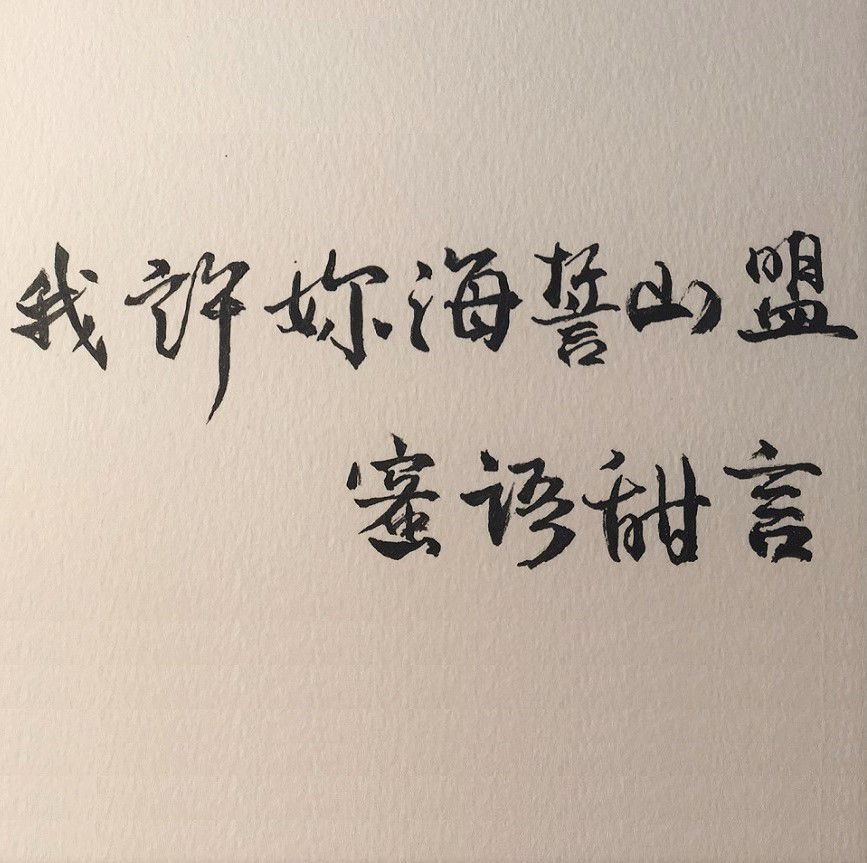 我許妳海誓山盟
蜜语甜言